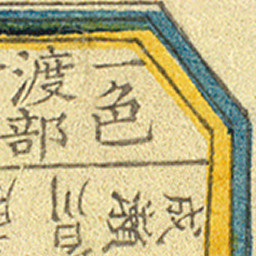 一色
渡部
成瀬
三